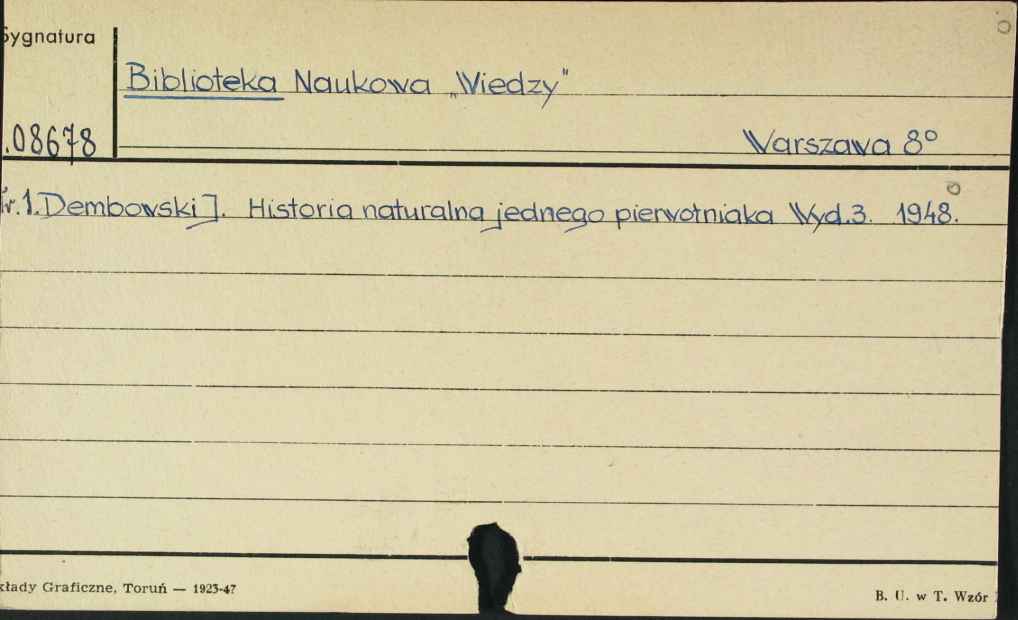 Sygnatura
Biblioteka Naukowa „Wiedzy"
.08678
Warszawa 8°
Nr.1. Dembowski J. Historia naturalna jednego pierwotniaka Wyd.3. 1948.
kłady Graficzne, Toruń — 1923-47
B. U. w T. Wzór